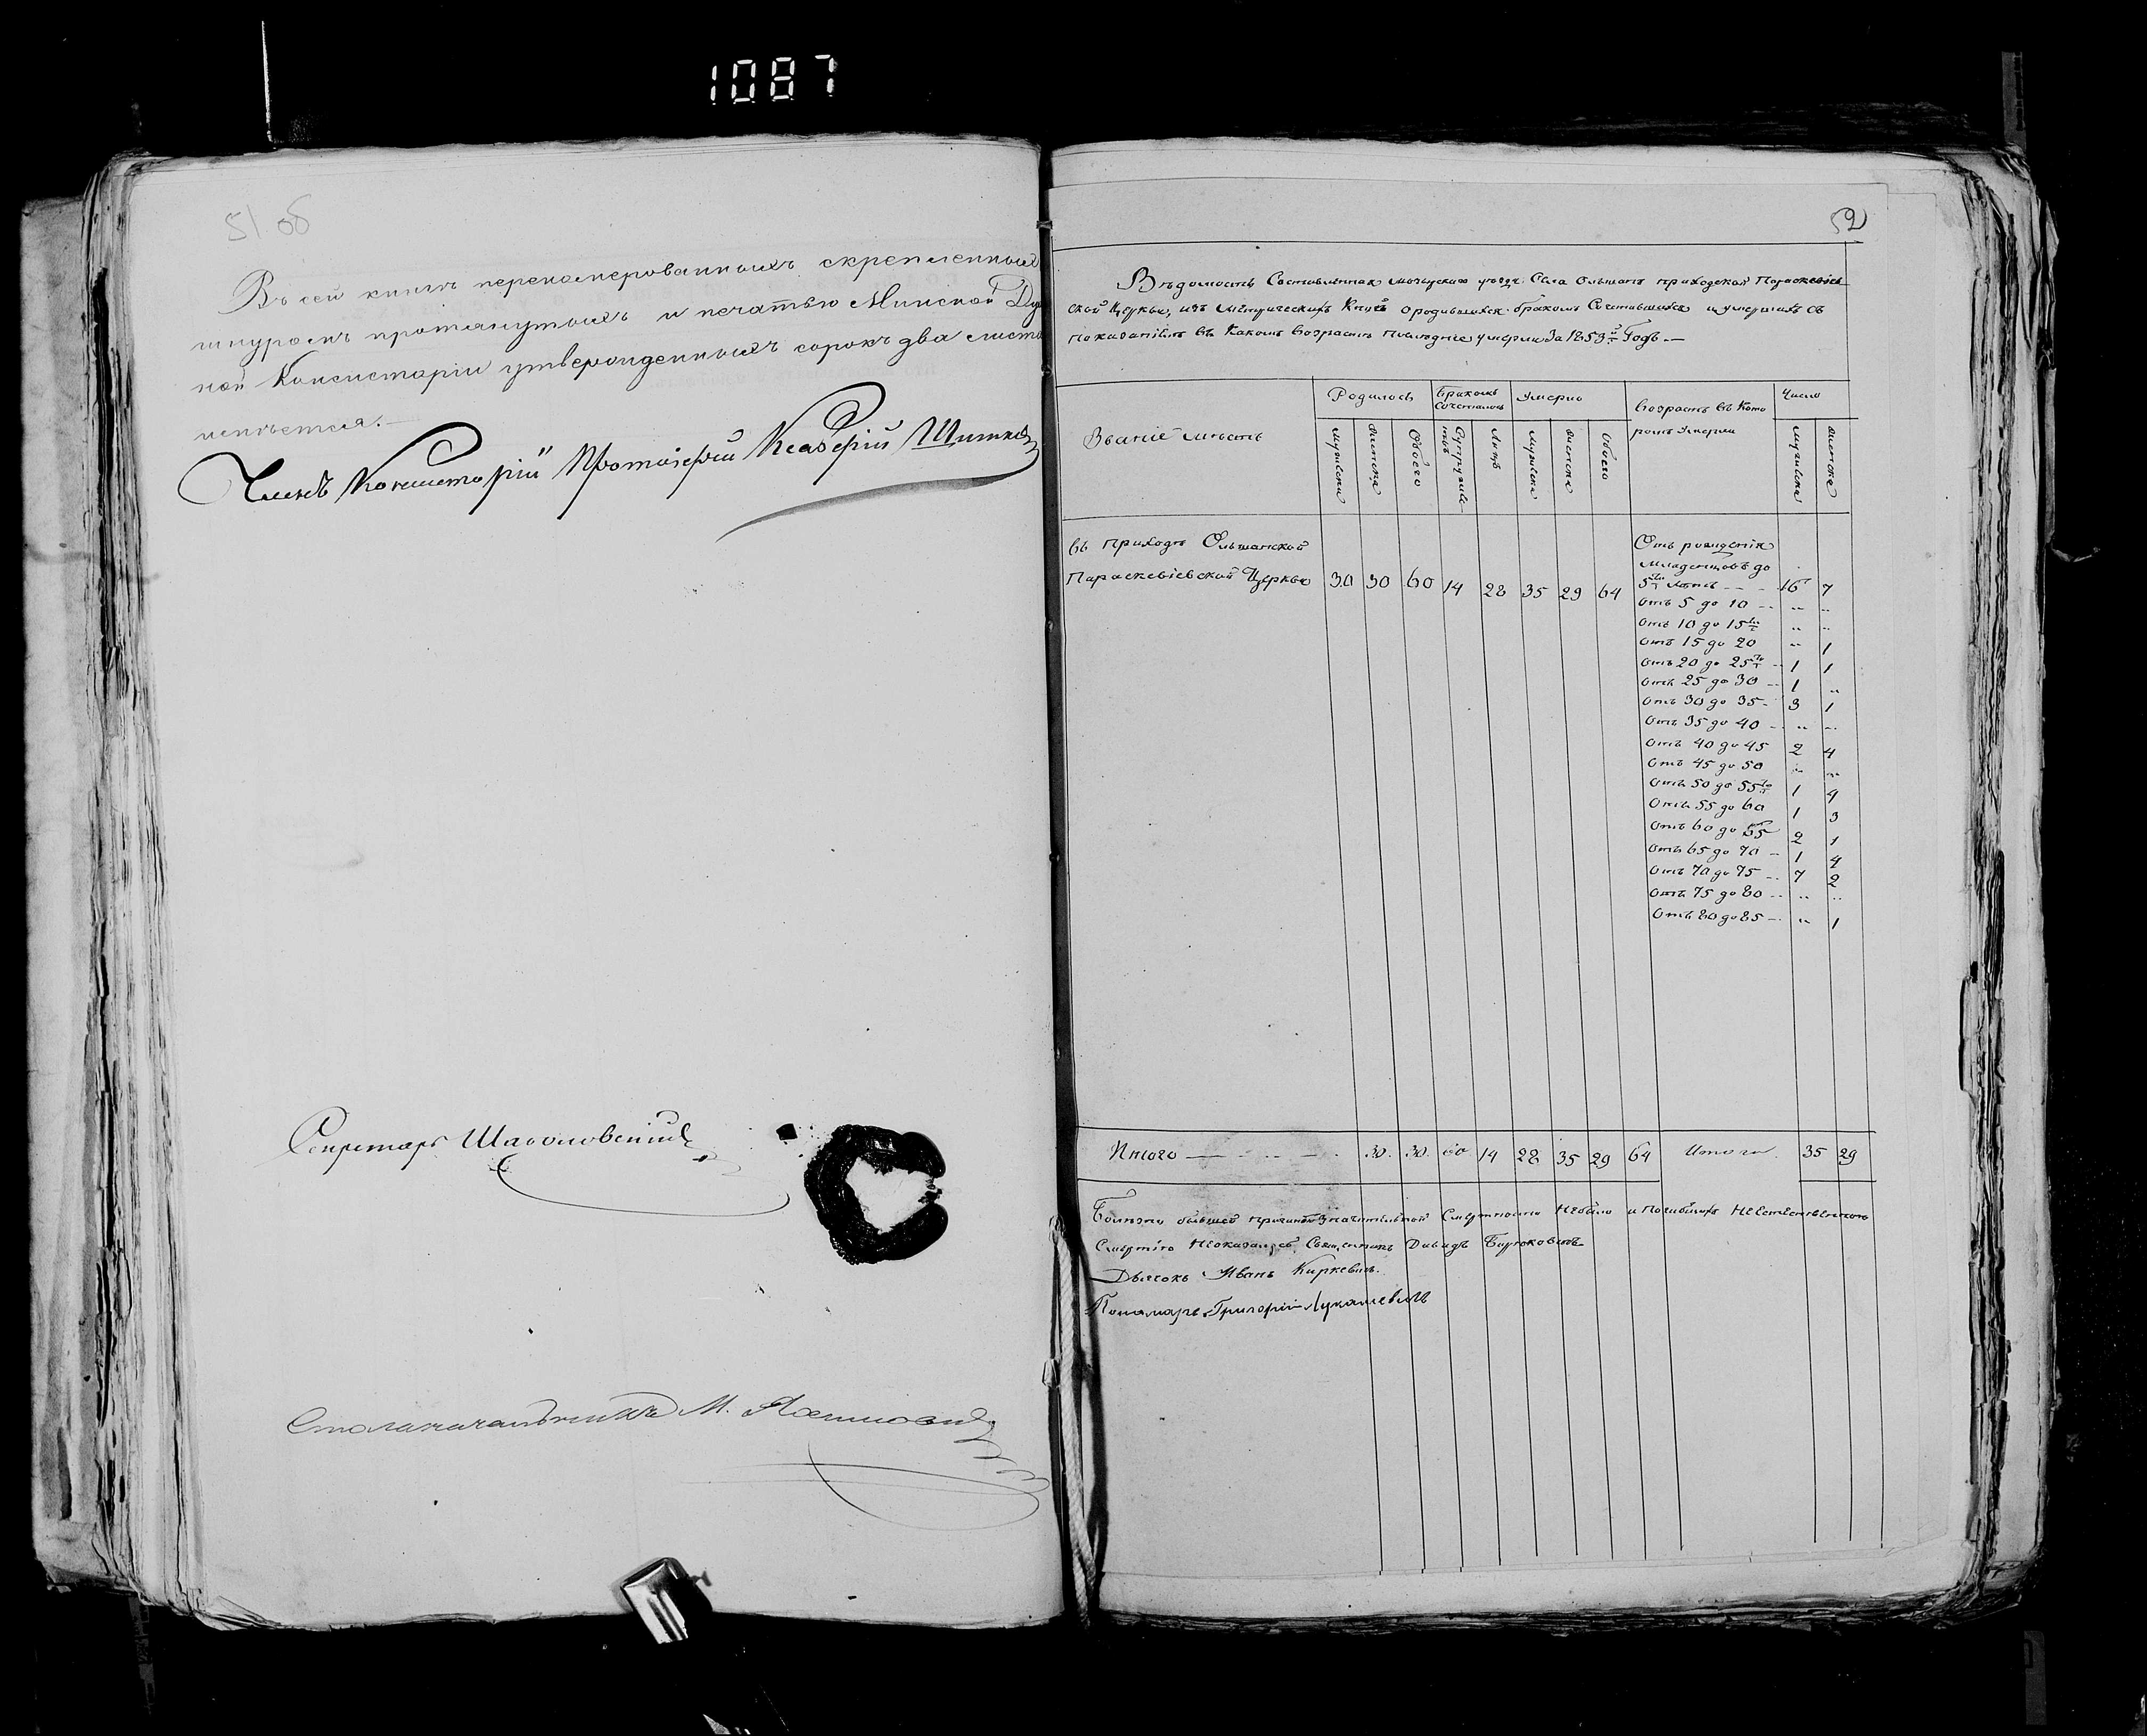 1087
51 об
Въ сей книгѣ перенамерованныхъ скрепленныхъ
шнуромъ протянутыхъ и печатью Минской Ду
ной Консисторіи утвержденныхъ сорокъ два листа
Членъ Консисторіи Протоіерей Ксаверій
Секретарь
Столоначальникъ М.
52
Вѣдомость Составленная мозырскаго уѣзд. Села Ольшанъ приходской Параскевіев
ской Церкви, изъ Метрическихъ Книгъ о родившихся бракомъ Сочетавшихся и умершихъ съ
показаніемъ въ Какомъ возрастѣ последніе умерли За 1853й Годъ.—
Званіе мѣстъ
Родилось
Бракомъ Сочеталось
Умерло
Возрастъ въ Кото
ромъ Умерли
Число
мужеска
женска
Обоего
Супружевъ
Лицъ
мужеска
женска
обоего
мужеска
женска
въ приходѣ Ольшанской
Параскевіевской Церкви 30 30 60 14 28 35 29 64
Отъ рожденія
Младенцовъ до
5ти лѣтъ — 16 7
Отъ 5 до 10 — „ „
Отъ 10 до 15ти „ „
Отъ 15 до 20 „ 1
Отъ 20 до 25ти 1 1
Отъ 25 до 30 — 1 „
Отъ 30 до 35 — 3 1
Отъ 35 до 40 — „ „
Отъ 40 до 45 2 4
Отъ 45 до 50 „ „
Отъ 50 до 55ти 1 4
Отъ 55 до 60 1 3
Отъ 60 до 65 2 1
Отъ 65 до 70 — 1 4
Отъ 70 до 75 — 7 2
Отъ 75 до 80 — „ „
Отъ 80 до 85 — „ 1
Итого — 30. 30. 60 14 28 35 29 64 Итого 35 29
Болѣзни бывшей причиной значительной Смертности Небыло и погибшихъ Неестественною
Смертію Неоказалось. Священникъ Давидъ
Дьячокъ Иванъ Киркевичъ.
Пономарь Григорій Лукашевичъ